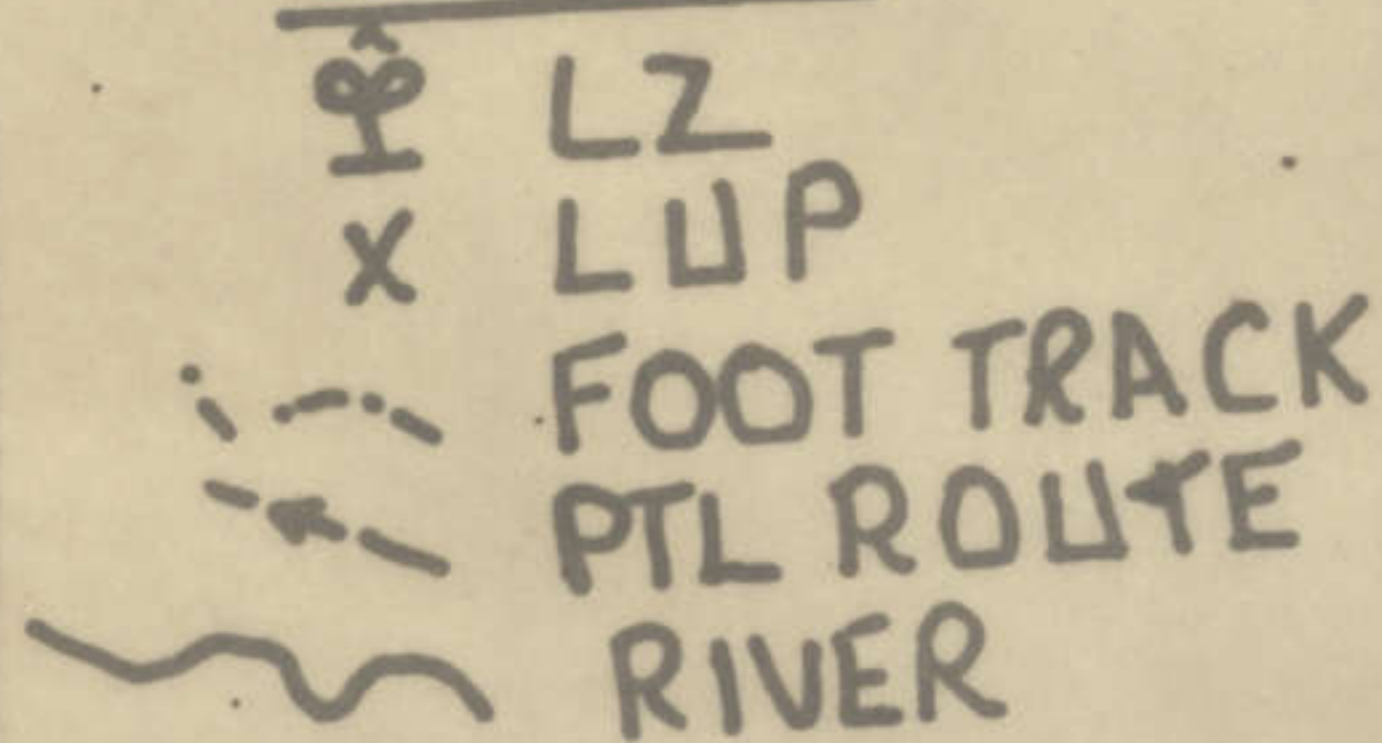 LZ
X LUP
FOOT TRACK
PTL ROUTE
RIVER